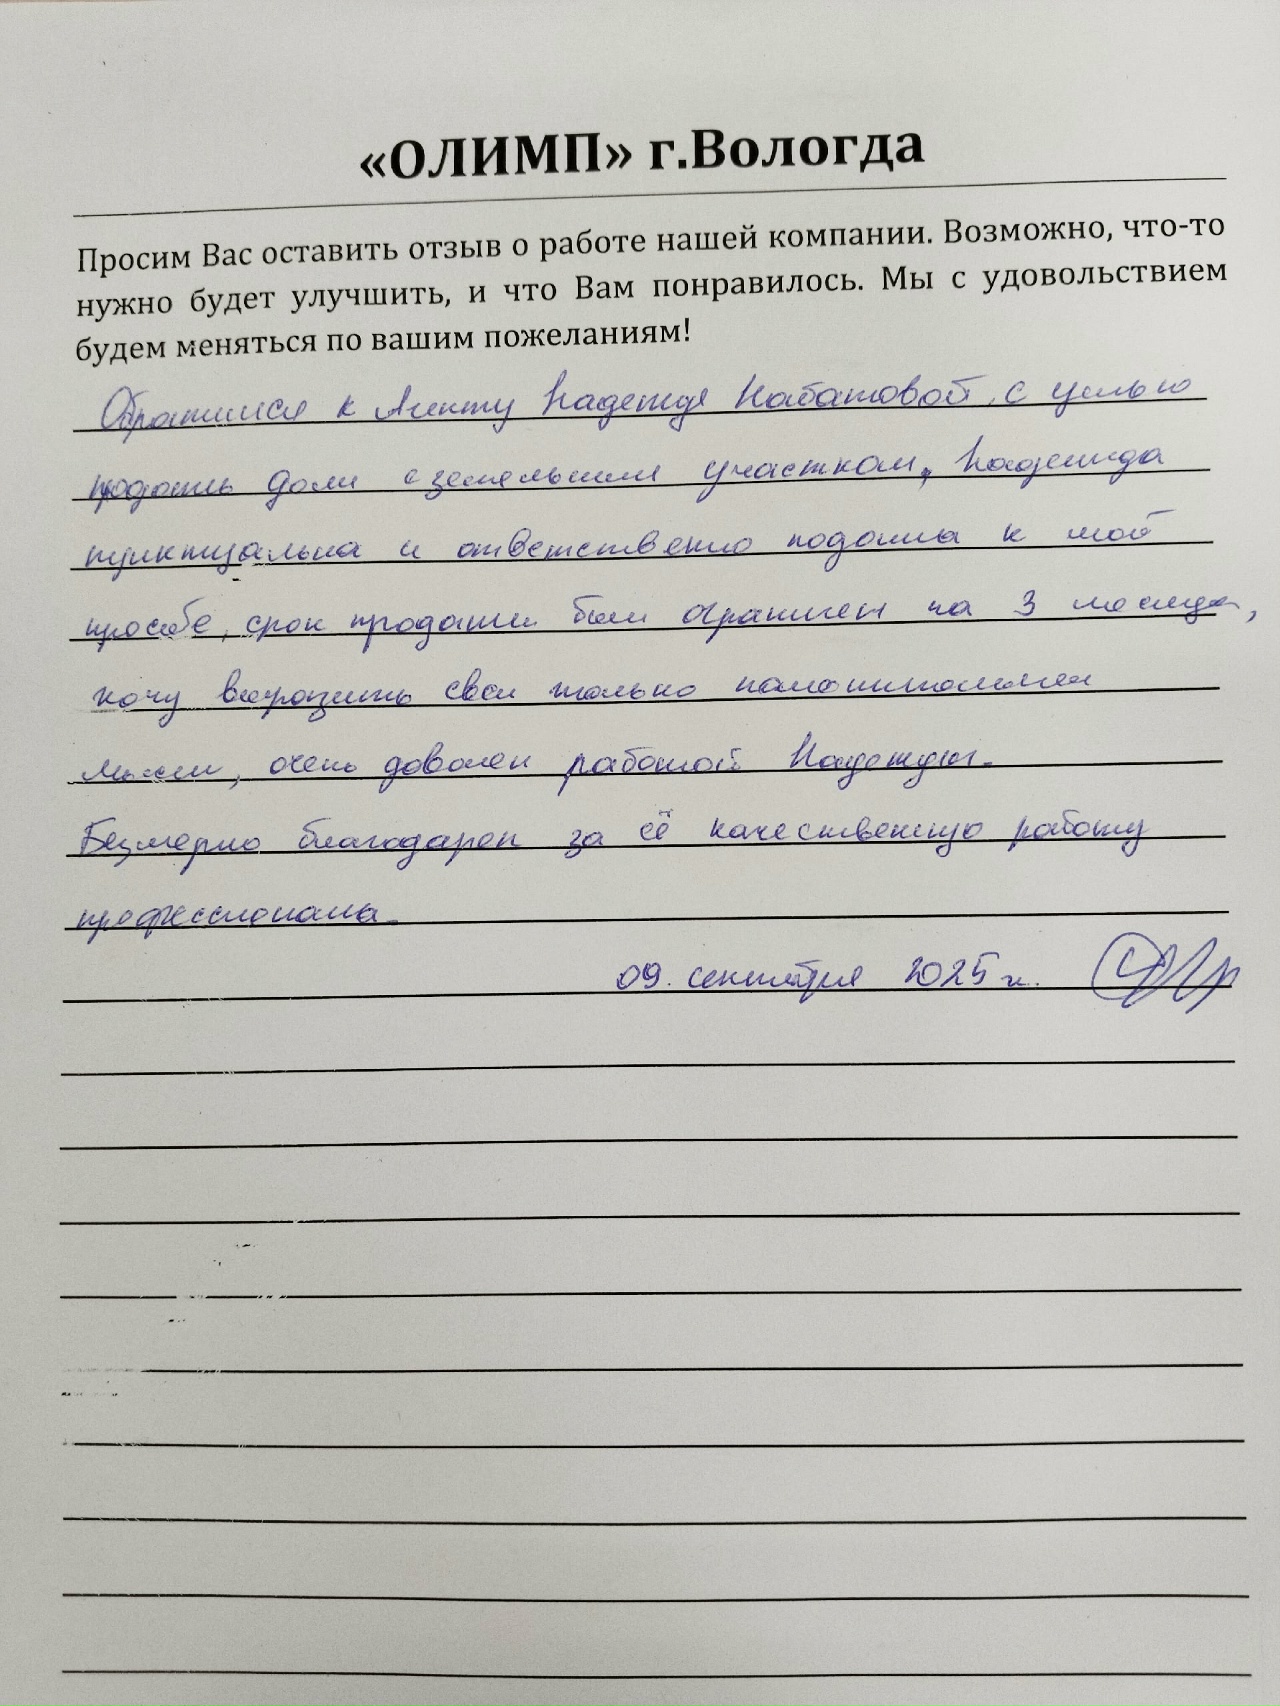 «ОЛИМП» г.Вологда
Просим Вас оставить отзыв о работе нашей компании. Возможно, что-то
нужно будет улучшить, и что Вам понравилось. Мы с удовольствием
будем меняться по вашим пожеланиям!
Обратился к Агенту Надежде Набатовой, с целью
продать дом с земельным участком, Надежда
пунктуальна и ответственно подошла к моей
просьбе, срок продажи был ограничен на 3 месяца,
хочу выразить свои только положительные
мысли, очень доволен работой Надежды.
Безмерно благодарен за её качественную работу
профессионала.
09. сентября 2025 г.